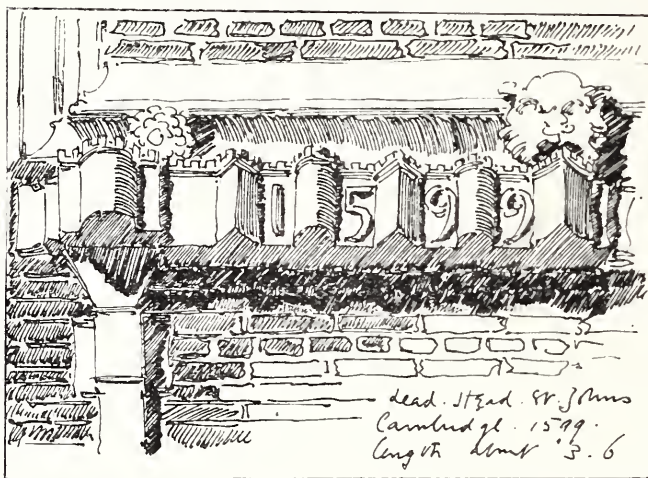 1599
Lead . Head . St. Johns
Cambridge . 1599 .
length about 3 . 6